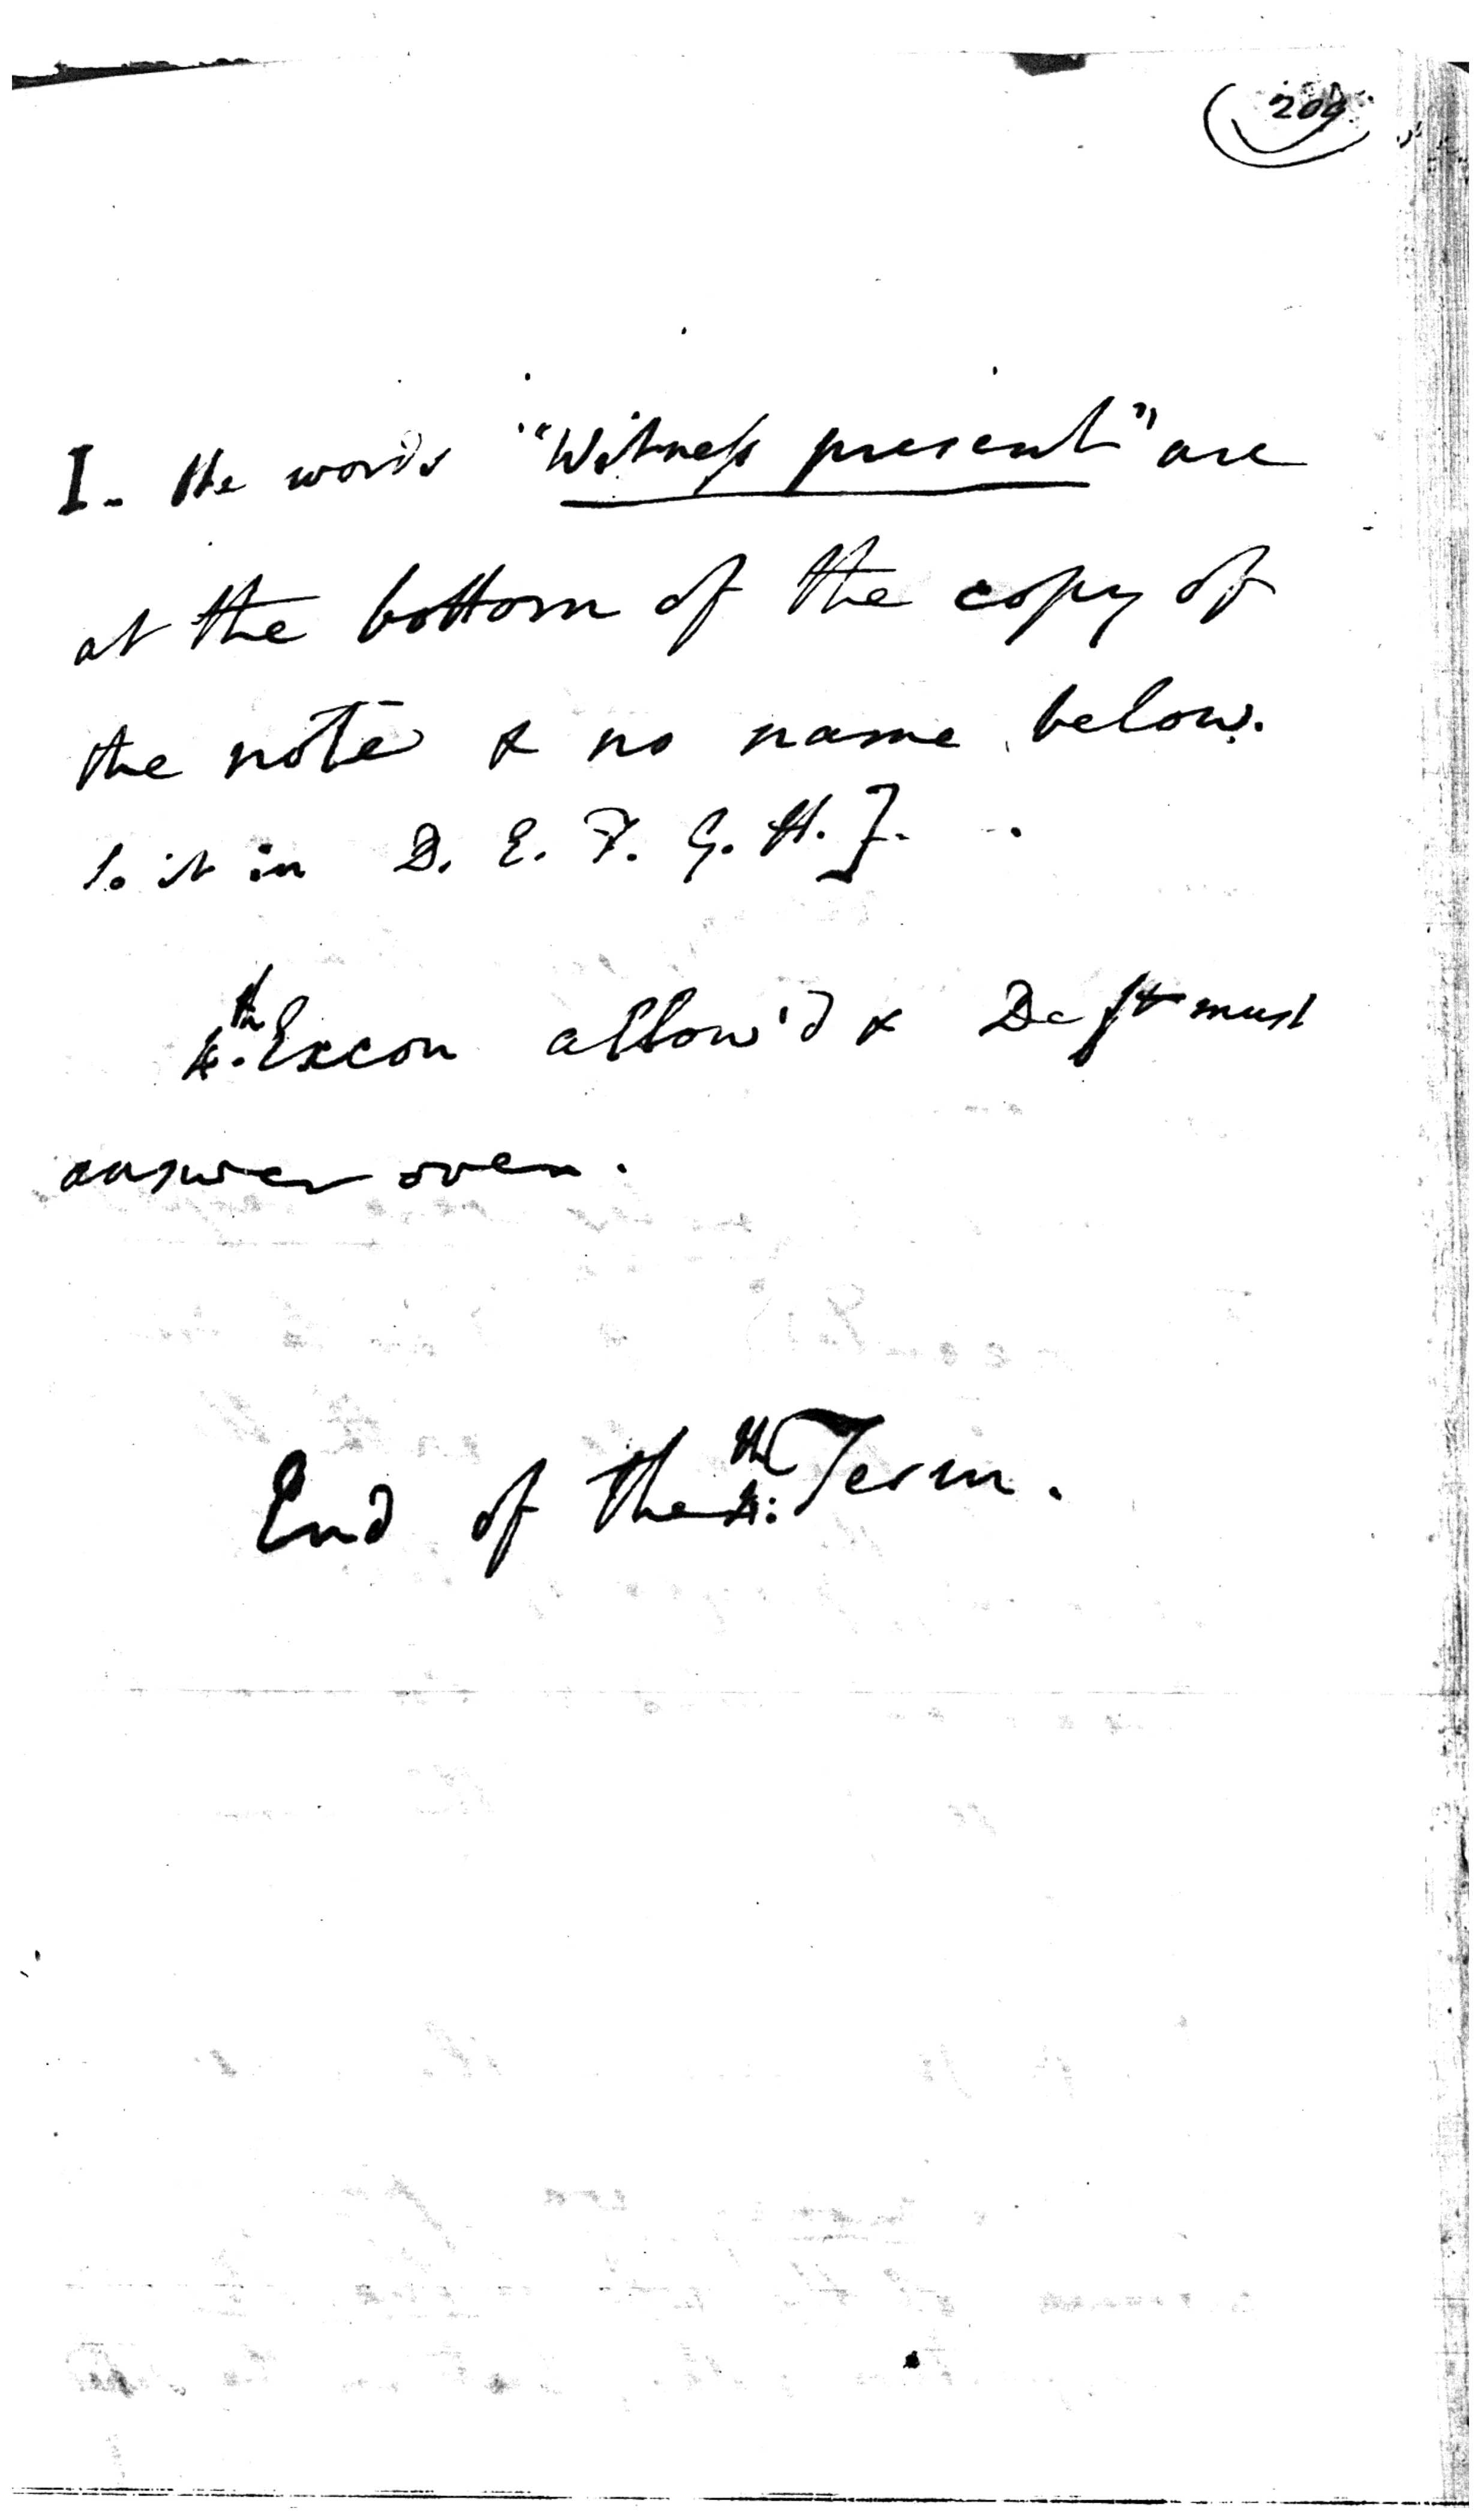 209.
I- the words "Witness present" are
at the bottom of the copy of
the note & no name below.
So it in D. E. F. G. H. J.
4.th Excon allow'd & Deft must
answer over.
End of the 4:th Term.